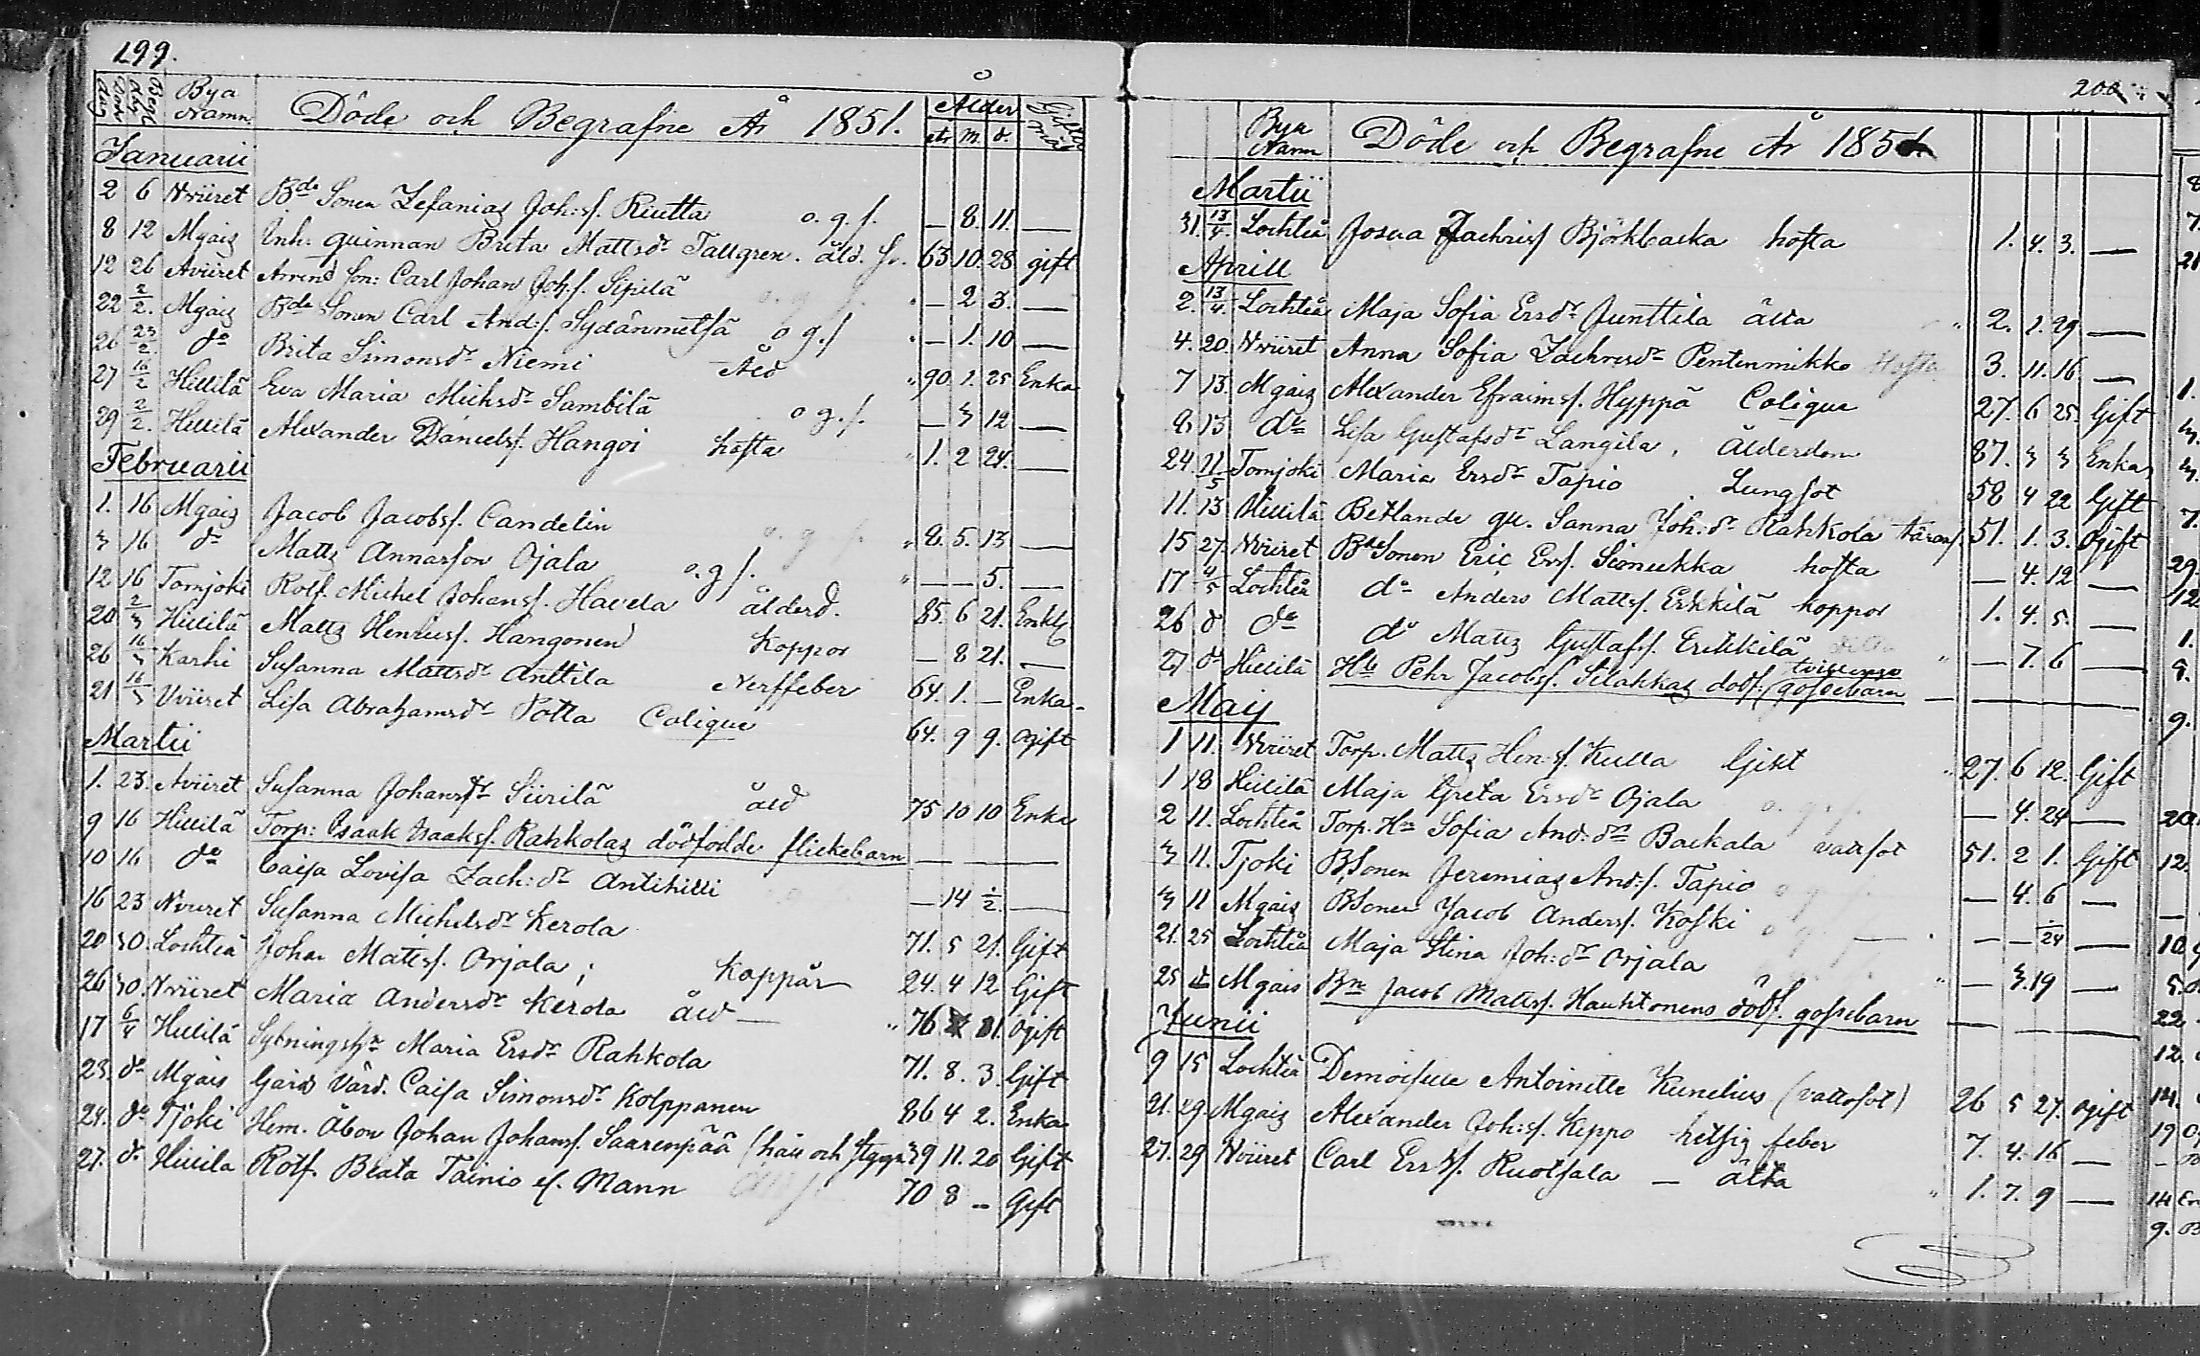 199.
Bya Namn Döde och Begrafne År 1851. Ålder
år m. d.
Januarii
2 6 Nviiret Bde Sonen Zefanias Joh:s. Riutta o.g.s. — 8. 11. —
8 12 Mgais Inh. quinnan Brita Mattsdr Tallgren. åld. 63. 10. 28 gift
12 26 Aviiret Arrend son: Carl Johan Joh.s. Sipilä o.g.s. — 2 3. —
22 2/2. Mgais Bde Sonen Carl And:s. Sydänmetsä o g.s — 1. 10 —
26 23/2. do Brita Simonsdr Niemi Åld 90. 1. 25 Enka
27 16/2 Hillilä Eva Maria Michsdr Sambilä o g.s. — 3 12 —
29 2/2. Hillilä Alexander Danielss. Hangoi hosta 1. 2 24. —
Februarii
1. 16 Mgais Jacob Jacobss. Candelin o.g.s. 8. 5. 13 —
3 16 do Matts Annasson Ojala o.g.s. — — 5. —
12 16 Tomjoki Rotf. Michel Johanss. Havela ålderd. 85. 6 21. Enkl
20 2/3 Hillilä Matts Henrics. Hangonen Koppor — 8 21. —
26 16/3 Karhi Susanna Mattsdr Anttila Nerffeber 64. 1. — Enka
21 16/3 Uviiret Lisa Abrahamsdr Potta Colique 64. 9 9. ogift
Martii
1. 23. Aviiret Susanna Johansdr Siirilä åld 75 10 10 Enka
9 16 Hillilä Torp: Isaak Isaakss. Rahkolas dödfödde flickebarn — — —
10 16 do Caisa Lovisa Zach:dr Antihilli — 14 1/2. —
16 23 Nviiret Susanna Michelsdr Kerola 71. 5 21. Gift
20 30. Lochteå Johan Matts. Orjala; Koppår 24. 4 12 Gift
26 30. Nviiret Maria Andersdr Kerola åld — 76 1. ogift
17 6/4 Hillilä Sytningshr Maria Ersdr Rahkola 71. 8. 3. Gift
23. do Mgais Gårds Värd. Caisa Simonsdr Kolppanen 86 4 2. Enka
24. do Tjoki Hem. Åbon Johan Johanss. Saarenpää (håll och styng 39 11. 20 Gift
27. do Hillila Rotf. Beata Tainio ef. Mann 70 8 — Gift
200
Bya Namn Döde och Begrafne År 1851
Martii
31. 13/4. Lochteå Josua Zachriss Björkbacka hosta 1. 4. 3. —
Aprill
2. 13/4. Lochteå Maja Sofia Ersdr Junttila älta 2. 1. 29 —
4. 20. Nviiret Anna Sofia Zachrisdr Pentinmikko Hosta 3. 11. 16. —
7 13. Mgais Alexander Efraims. Hyppä Colique 27. 6 25. Gift
8 13 do Lisa Gustafsdr Langila, Ålderdom 87. 3 3 Enka
24. 11/5 Tomjoki Maria Ersdr Tapio Lungsot 58 4 22 Gift
11. 13 Hillilä Betlande qu. Sanna Joh:dr Rahkola tärans. 51. 1. 3. Ogift
15 27. Nviiret Bde Sonen Eric Ers. Sionukka hosta — 4. 12 —
17 4/5 Lochteå do Anders Matts. Erkkilä Koppor 1. 4. 5. —
26 d do do Matts Gustafs. Erkkilä — 7. 6 —
27 do Hillilä Hb Pehr Jacobs. Silakkas döds: (gossebarn tvillingar — — —
Maij
1 11. Nviiret Torp. Matts Hen:s. Kulla Gikt 27. 6 12. Gift
1 18 Hillilä Maja Greta Ersdr Ojala o.g.s. — 4. 24 —
2 11. Lochteå Torp. Hu Sofia And:dr Backala vattsot 51. 2 1. Gift
3 11. Tjoki B.Sonen Jeremias And:s. Tapio o g s. — 4. 6 —
3 11 Mgais BSonen Jacob Anders. Koski o g. — — 24 —
21. 25 Lochteå Maja Stina Joh:dr Orjala — 3. 19 —
25 d Mgais Bn Jacob Matts. Hauhtonens döds. gossebarn — — —
Junii
9 15 Lochteå Demoiselle Antoinette Kunelius (vattsot) 26 5 27. ogift
21. 29. Mgais Alexander Joh:s. Keppo hetsig feber 7. 4. 16 —
27. 29 Nviiret Carl Ers. Ruotsala — älta 1. 7. 9 —